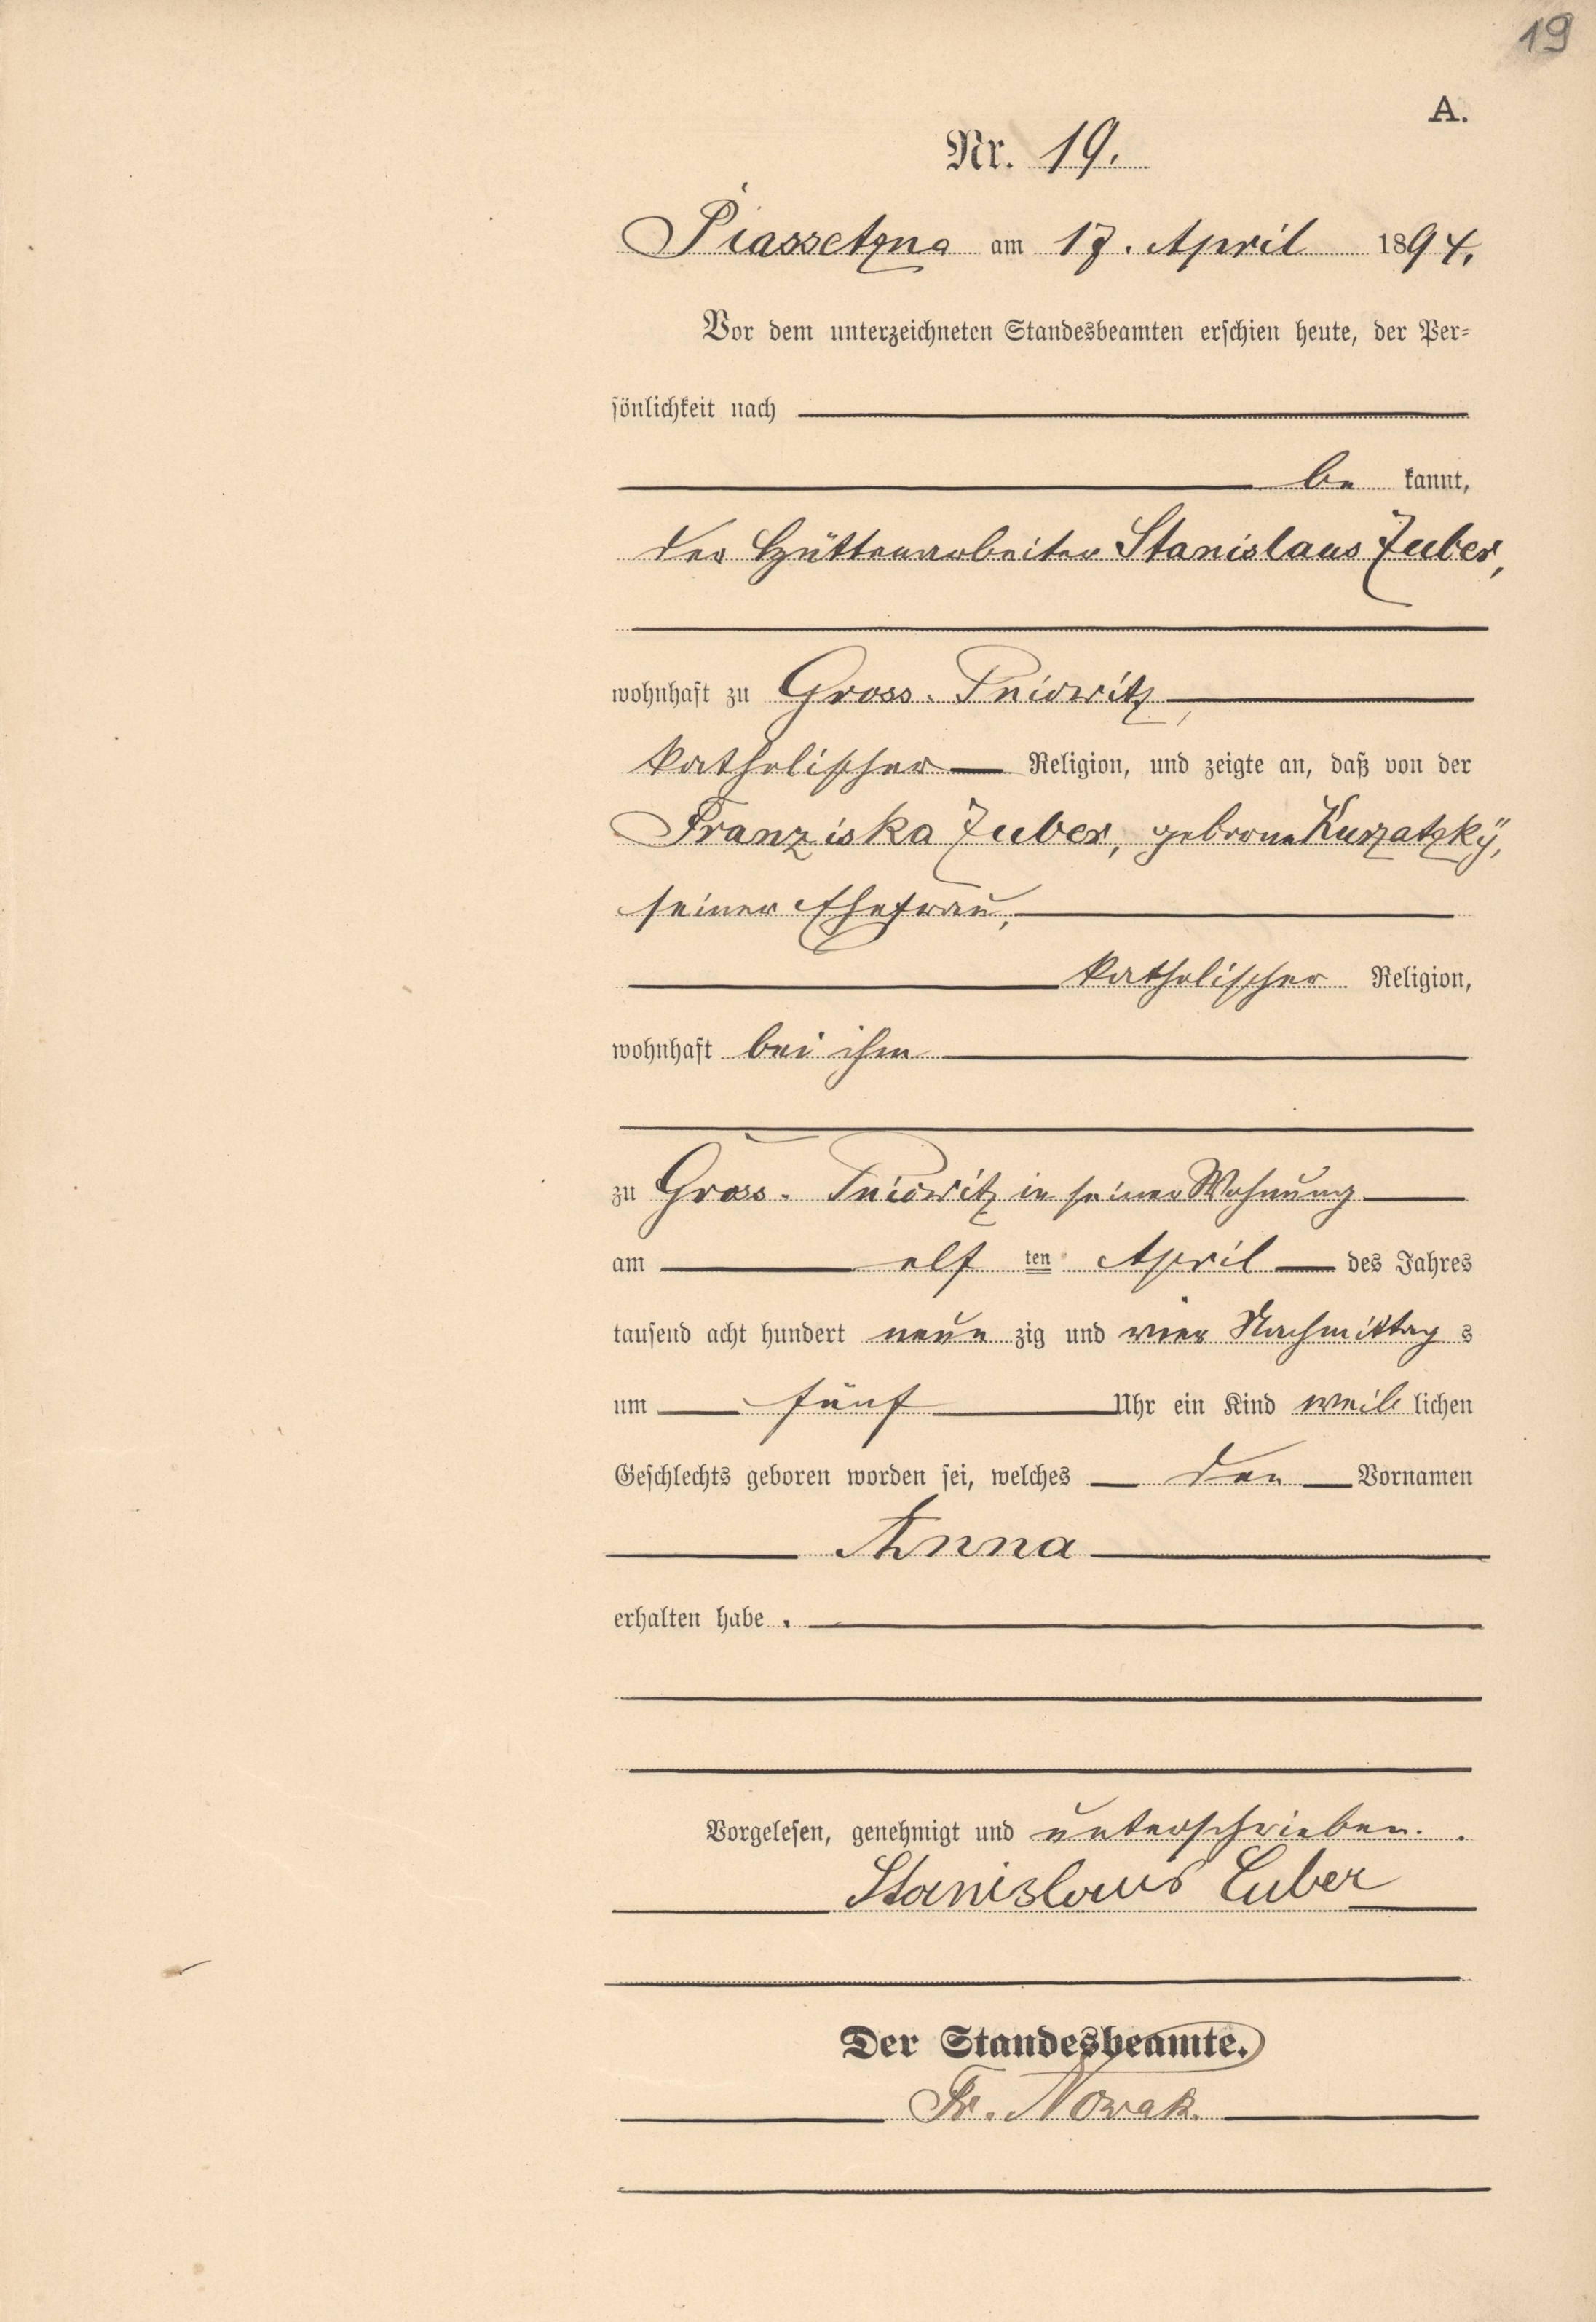 19
A.
Nr. 19.
Piassetzna am 17. April 1894.
Vor dem unterzeichneten Standesbeamten erschien heute, der Per-
sönlichkeit nach
be kannt,
der Hüttenarbeiter Stanislaus Zuber,
wohnhaft zu Gross-Pniowitz,
katholischer Religion, und zeigte an, daß von der
Franziska Zuber, geborne Kurzatzkÿ,
seiner Ehefrau,
katholischer Religion,
wohnhaft bei ihm
zu Gross-Pniowitz in seiner Wohnung
am elf ten April des Jahres
tausend acht hundert neun zig und vier Nachmittag s
um fünf Uhr ein Kind weib lichen
Geschlechts geboren worden sei, welches den Vornamen
Anna
erhalten habe.
Vorgelesen, genehmigt und unterschrieben.
Stanislaus Cuber
Der Standesbeamte.
Fr. Nowak.